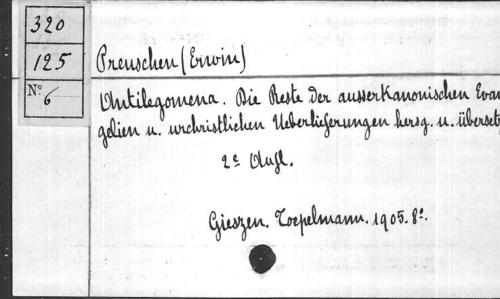 320
125
Nº 6
Preuschen (Erwin)
Antilegomena. Die Reste der ausserkanonischen Evan
gelien u. urchristlichen Ueberlieferungen hersg. u. überset
2e Aufl.
Gieszen. Toepelmann. 1905. 8º.